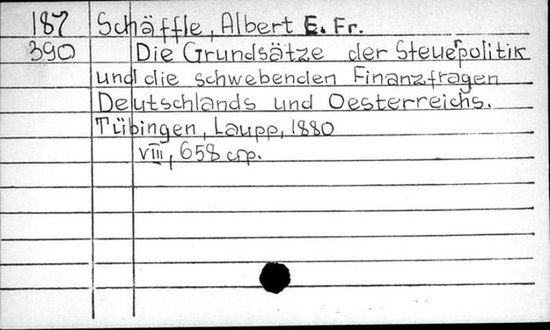 187 Schäffle, Albert E. Fr.
390 Die Grundsätze der Steuerpolitik
und die schwebenden Finanzfragen
Deutschlands und Oesterreichs.
Tübingen, Laupp, 1880
VIII, 658 p.